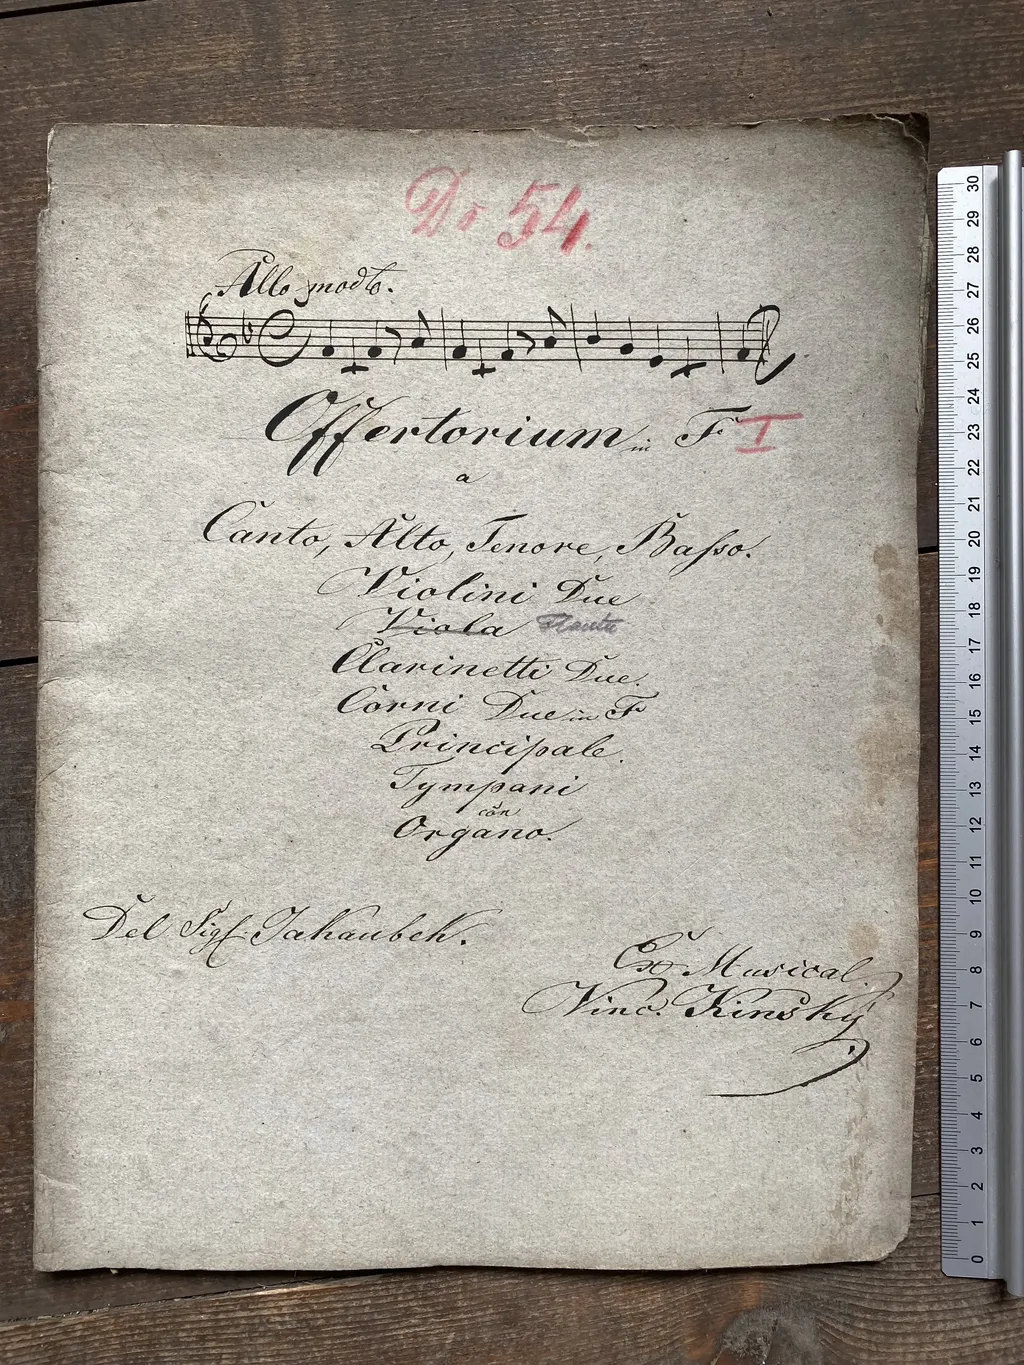 No 54.
Allo modto.
Offertorium in F I
a
Canto, Alto, Tenore, Basso.
Violini Due
Viola Flauto
Clarinetti Due.
Corni Due in F
Principale.
Tympani
con
Organo.
Del Sigf. Jakaubek.
Ex Musical.
Vinc. Kinský
30
29
28
27
26
25
24
23
22
21
20
19
18
17
16
15
14
13
12
11
10
9
8
7
6
5
4
3
2
1
0